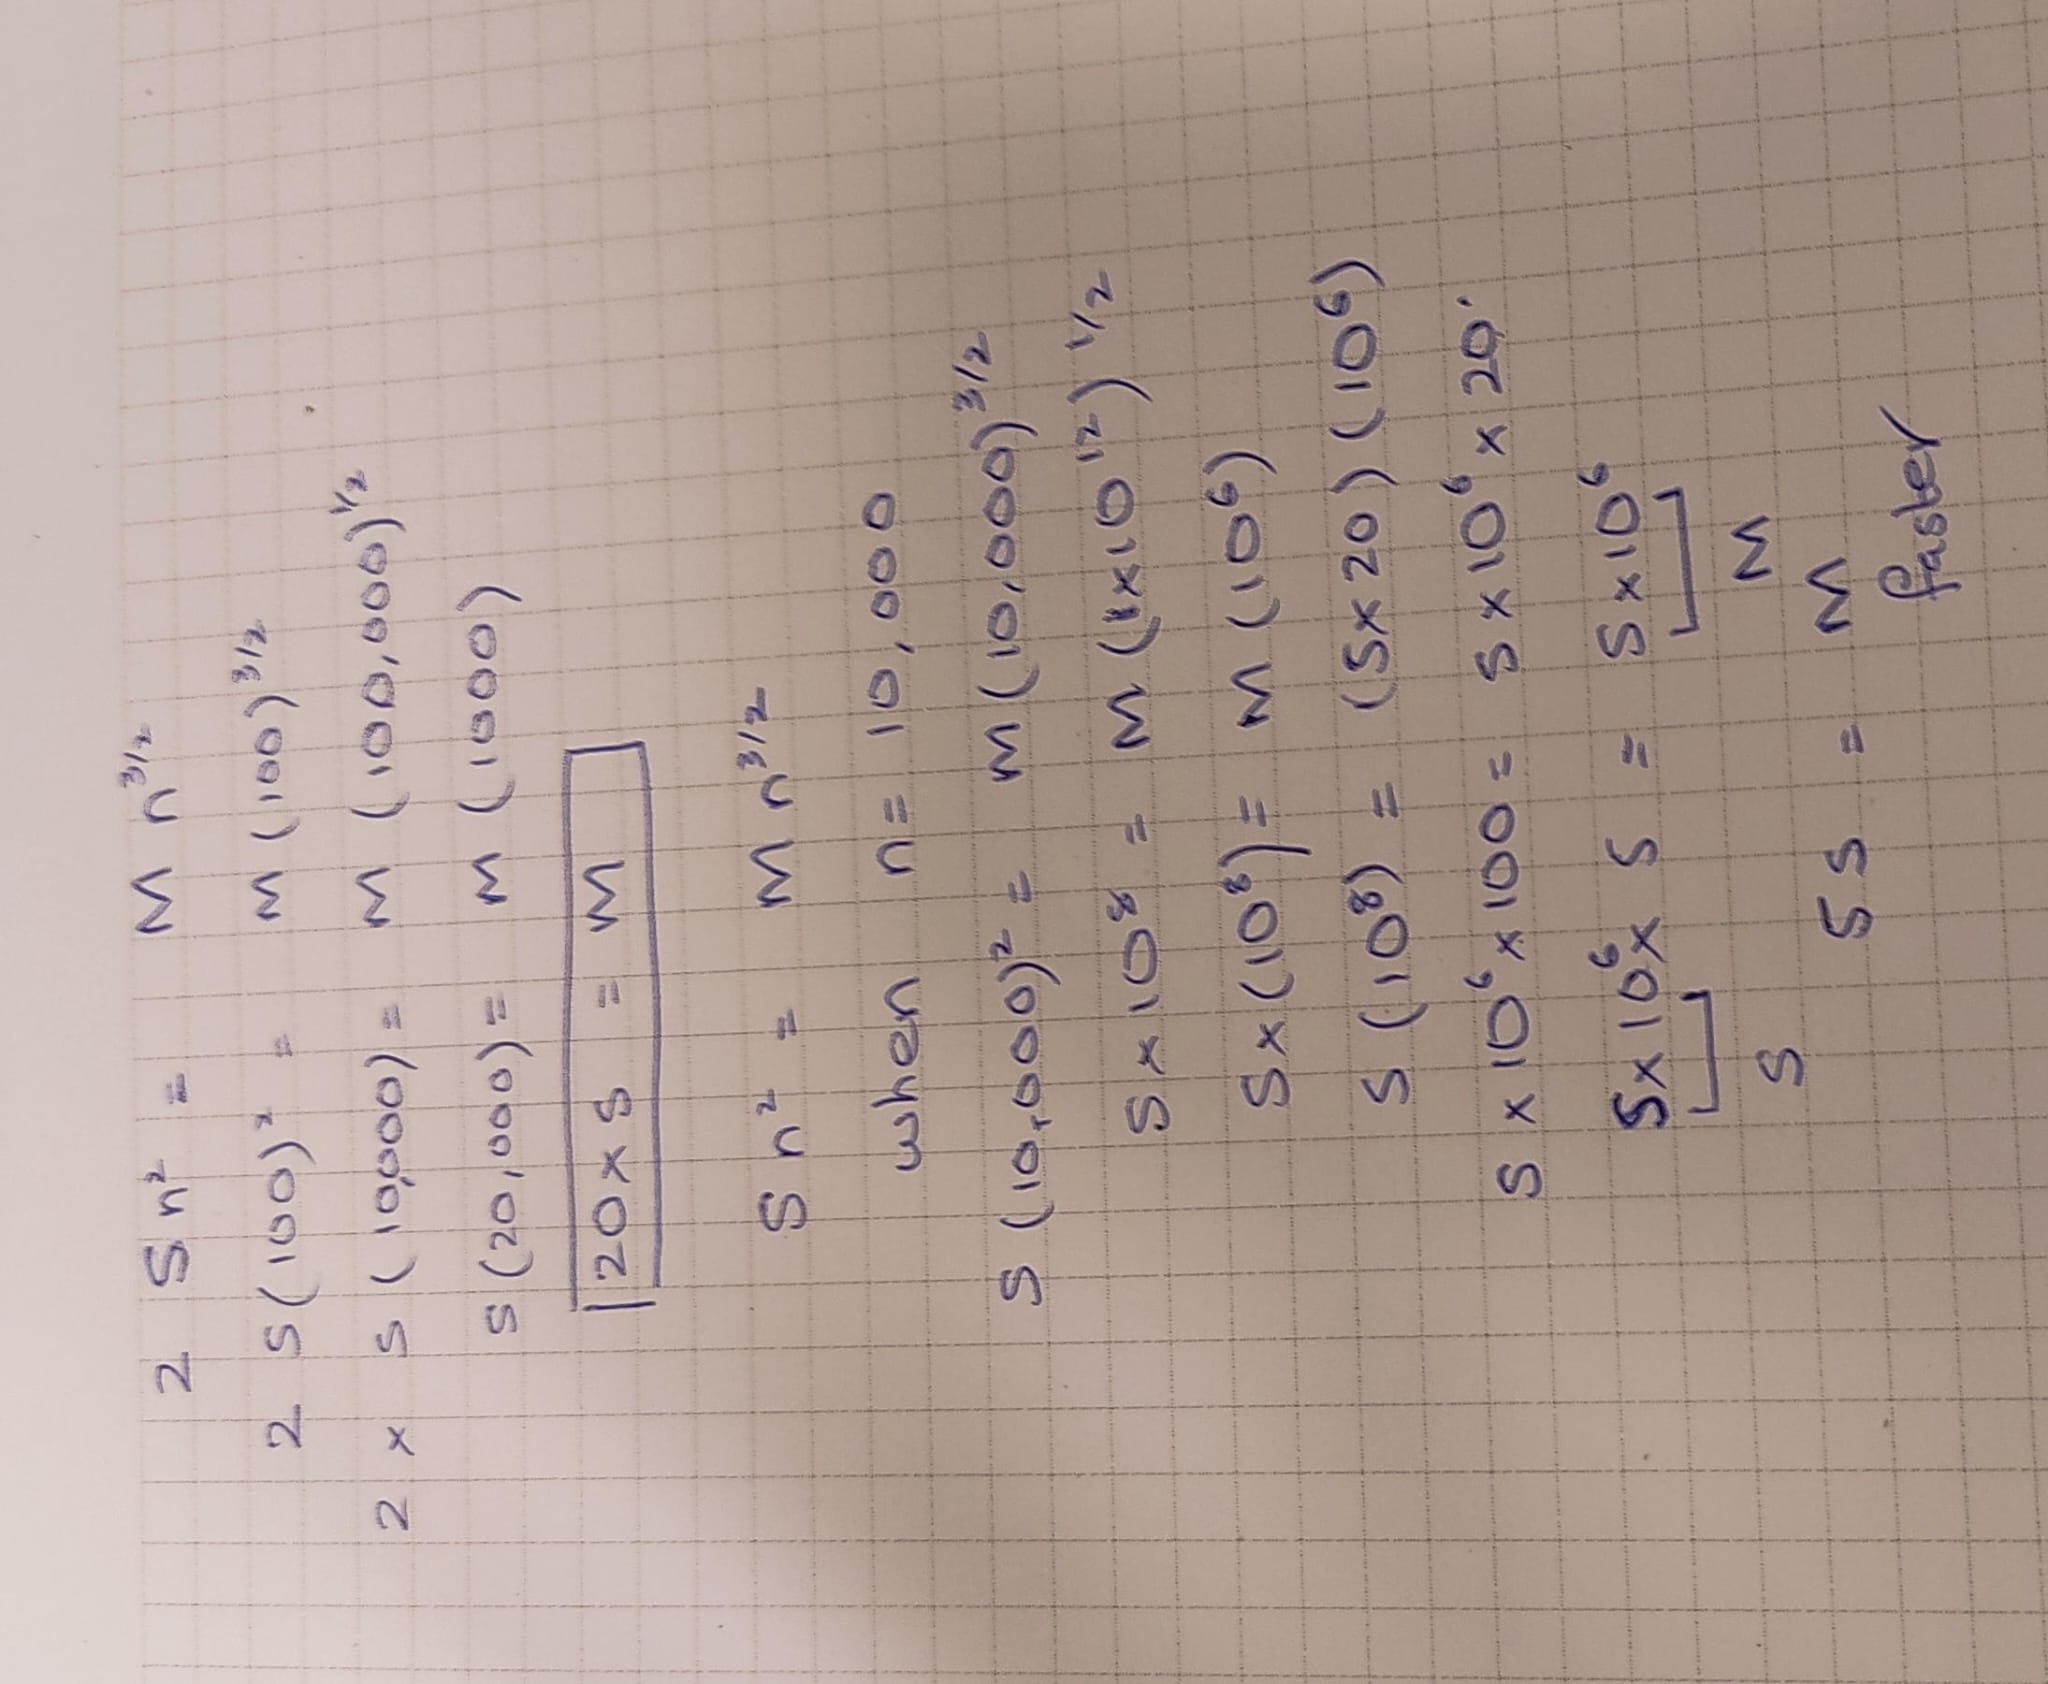 2 S n² = M n^3/2
2 S(100)² = M (100)^3/2
2 × S (10,000) = M (100,000)^1/2
S (20,000) = M (1000)
20 × S = M
S n² = M n^3/2
when n = 10,000
S (10,000)² = M (10,000)^3/2
S × 10⁸ = M (1×10¹²)^1/2
S × (10⁸) = M (10⁶)
S (10⁸) = (S × 20) (10⁶)
S × 10⁶ × 100 = S × 10⁶ × 20
S × 10⁶ × 5 = S × 10⁶
S M
5S = M
faster